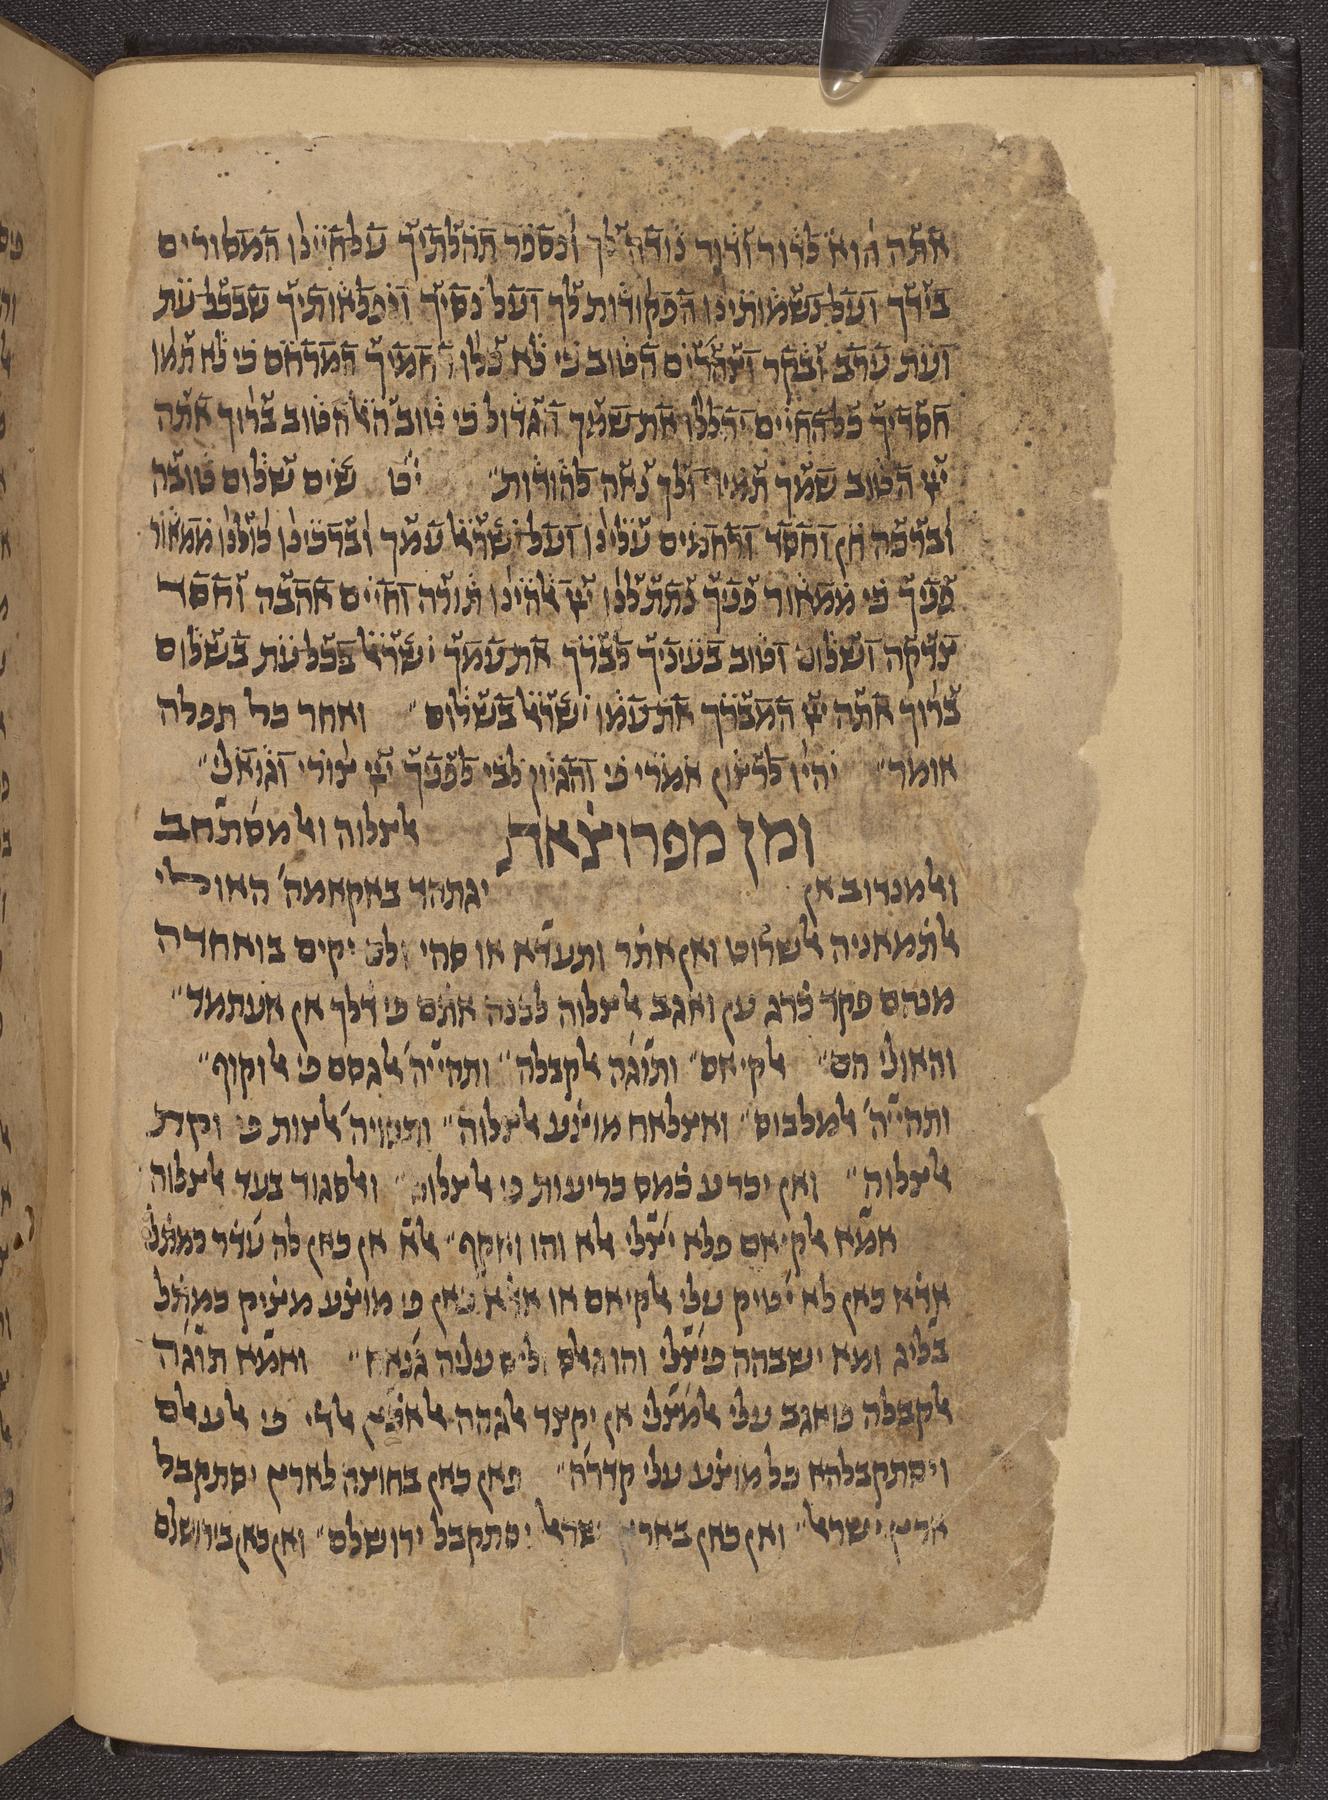 אתה הוא לדור ודור נודה לך ונספר תהלתיך על חיינו המסורים
בידך ועל נשמותינו הפקודות לך ועל נסיך ונפלאותיך שבכל עת
ועת ערב ובקר וצהרים הטוב כי לא כלו רחמיך המרחם כי לא תמו
חסדיך כל החיים יהללו את שמך הגדול כי טוב האל הטוב ברוך אתה
ייי הטוב שמך תמיד ולך נאה להודות״ יט שים שלום טובה
וברכה חן וחסד ורחמים עלינו ועל ישראל עמך וברכינו כולנו ממאור
פניך כי ממאור פניך נתת לנו ייי אלהינו תורה וחיים אהבה וחסד
צדקה ושלום וטוב בעיניך לברך את עמך ישראל בכל עת בשלום
ברוך אתה ייי המברך את עמו ישראל בשלום״ ואחר כל תפלה
אומר״ יהיו לרצון אמרי פי והגיון לבי לפניך ייי צורי וגואלי״
ומן מפרוצ̇את אלצלוה ואלמסתחב
ואלמנדוב אן יגתהד באקאמה̈ האולי
אלת̇מאניה אלשרוט ואן את̇ר ותעדא או סהי ולם יקים בואחדה
מנהם פקד כ̇רג ען ואגב אלצלוה לכנה את̇ם פי ד̇לך אן אעתמד״
והאולי הם״ אלקיאם״ ותוג̇ה אלקבלה״ ותהייה̈ אלגסם פי אלוקוף״
ותהייה̈ אלמלבוס״ ואצלאח מוצ̇ע אלצלוה״ ותסויה̈ אלצות פי וקת
אלצלוה״ ואן יכרע כ̇מס כריעות פי אלצלוה״ ואלסגוד בעד אלצלוה
אמא אלקיאם פלא יצלי אלא והו ואקף״ אלא אן כאן לה עד̇ר כמת̇ל
אד̇א כאן לא יטיק עלי אלקיאם או אד̇א כאן פי מוצ̇ע מצ̇יק כמת̇ל
בליג ומא ישבהה פיצלי והו גאלס וליס עליה ג̇נאח״ ואמא תוג̇ה
אלקבלה פואגב עלי אלמצלי אן יקצד אלגהה אלאפצ̇ל אלד̇י פי אלעאלם
ויסתקבלהא כל מוצ̇ע עלי קדרה״ פאן כאן בחוצה לארץ יסתקבל
ארץ ישראל״ ואן כאן בארץ ישראל יסתקבל ירושלם״ ואן כאן בירושלם